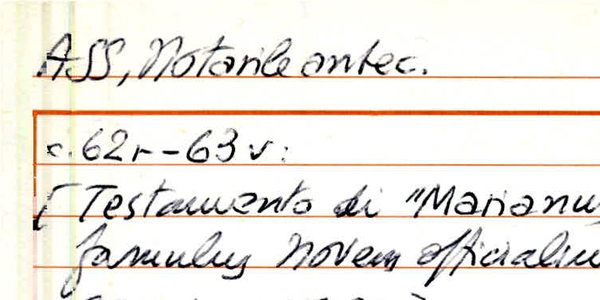 ASS, Notarile antec.
c. 62r-63v:
[Testamento di "Marianu
famulus Novem officialiu